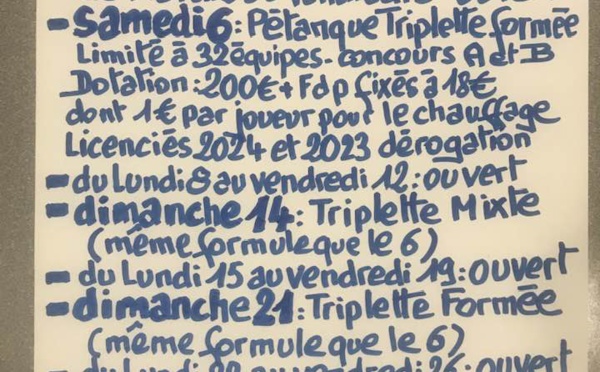 - Samedi 6: Pétanque Triplette formée
Limité à 32 équipes - concours A et B
Dotation: 200€ + Fdp fixés à 18€
dont 1€ par joueur pour le chauffage
Licenciés 2024 et 2023 dérogation
- du Lundi 8 au vendredi 12: ouvert
- dimanche 14: Triplette Mixte
(même formule que le 6)
- du Lundi 15 au vendredi 19: ouvert
- dimanche 21: Triplette Formée
(même formule que le 6)
- du Lundi 22 au vendredi 26: ouvert